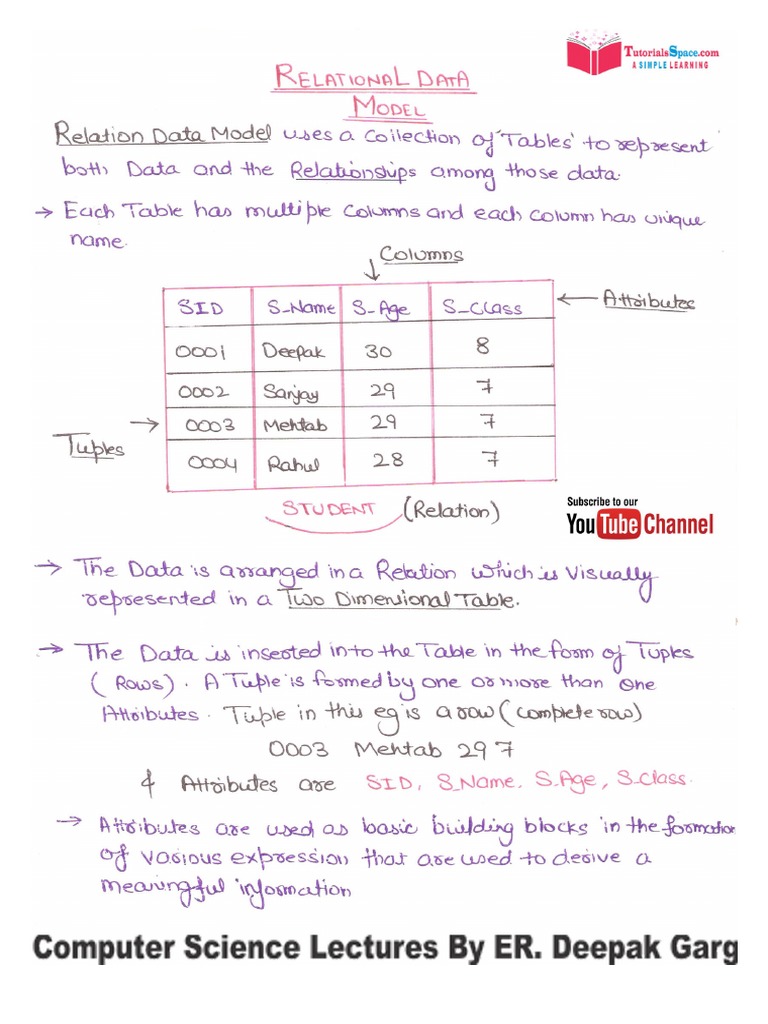 TutorialsSpace.com
A SIMPLE LEARNING
RELATIONAL DATA
MODEL
Relation Data Model uses a Collection of 'Tables' to represent
both Data and the Relationships among those data.
→ Each Table has multiple columns and each column has unique
name.
Columns
SID S_Name S_Age S_Class
← Attributes
0001 Deepak 30 8
0002 Sanjay 29 7
0003 Mehtab 29 7
Tuples →
0004 Rahul 28 7
STUDENT (Relation)
Subscribe to our
YouTube Channel
→ The Data is arranged in a Relation which is Visually
represented in a Two Dimensional Table.
→ The Data is inserted into the Table in the form of Tuples
(Rows). A Tuple is formed by one or more than one
Attributes. Tuple in this eg is a row (complete row)
0003 Mehtab 29 7
& Attributes are SID, S_Name, S_Age, S_Class.
→ Attributes are used as basic building blocks in the formation
of various expression that are used to derive a
meaningful information
Computer Science Lectures By ER. Deepak Garg